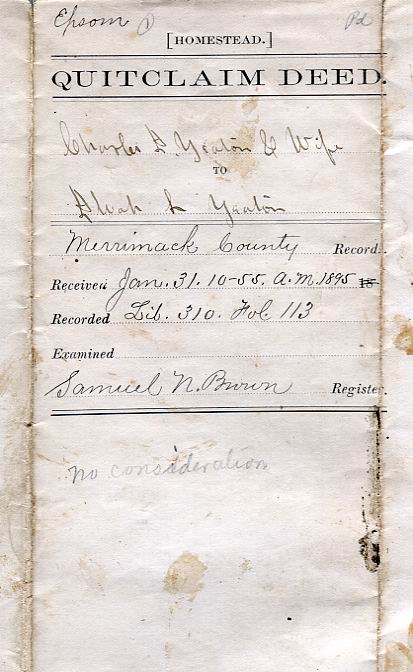 Epsom 1 Pd
[HOMESTEAD.]
QUITCLAIM DEED.
Charles S. Yeaton & Wife
TO
Alvah L Yeaton
Merrimack County Record.
Received Jan. 31. 10-55. A.M. 1895 18
Recorded Lib. 310. Fol. 113
Examined
Samuel N. Brown Register.
no consideration